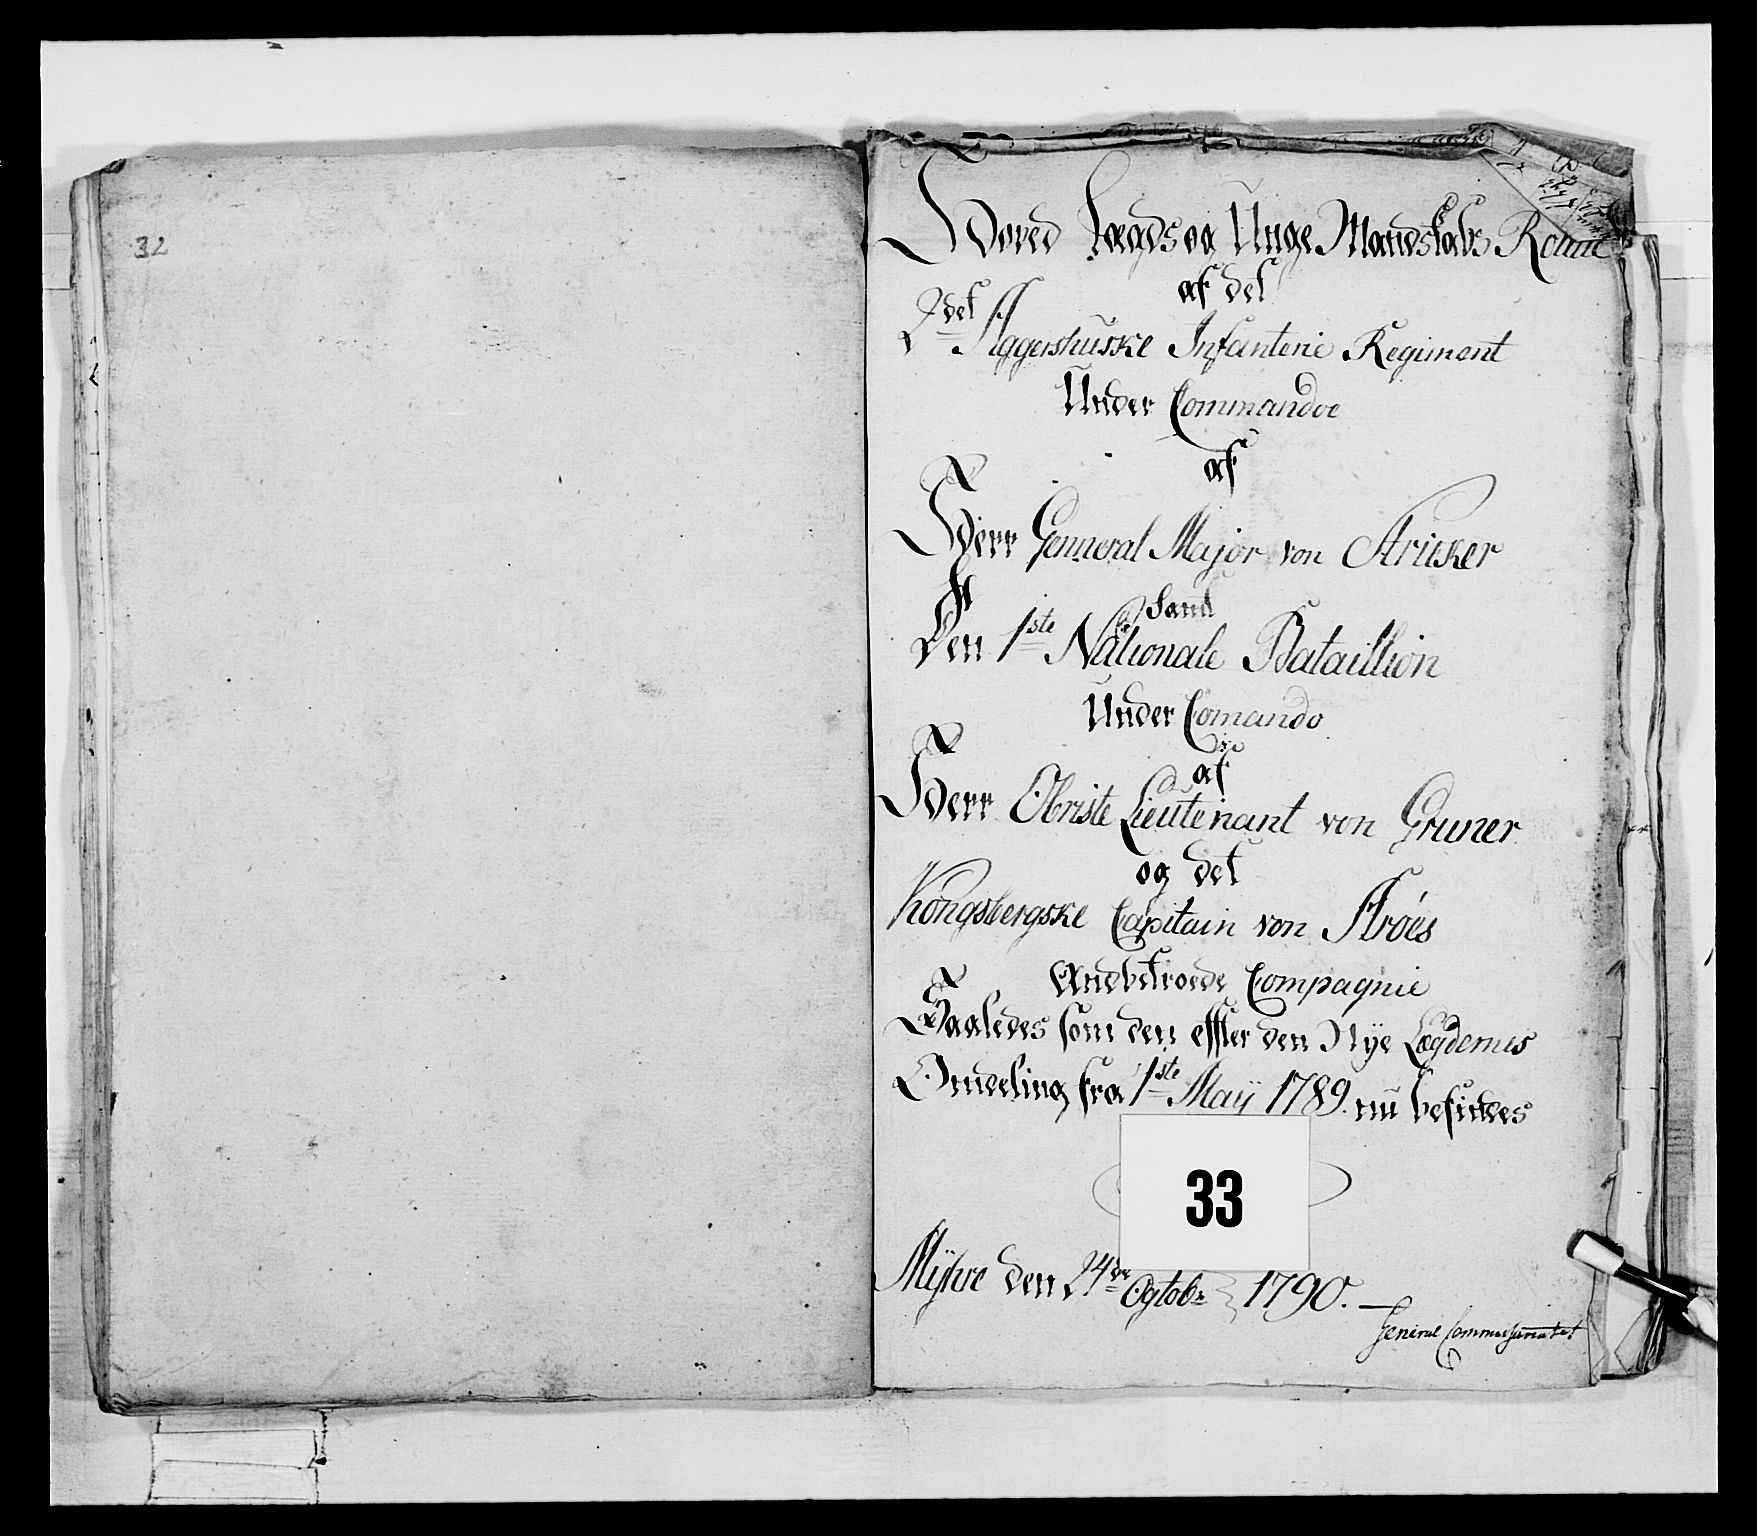 32
Hoved Lægds og Unge Mandskabs Roulle
af det
2det Aggershuuske Infanterie Regiment
Under Commandoe
af
Herr Genneral Major von Stricker
Samt
Den 1ste Nationale Bataillion
Under Comando
af
Herr Obriste Lieutenant von Gruner
og det
Kongsbergske Capitain von Ströes
Anbetroede Compagnie
Saaledes som den effter den Nÿe Lægdernes
Inndeling fra 1ste Maÿ 1789. nu befindes
33
Mÿhre den 24de Ogtobr 1790.
General Commissariatet